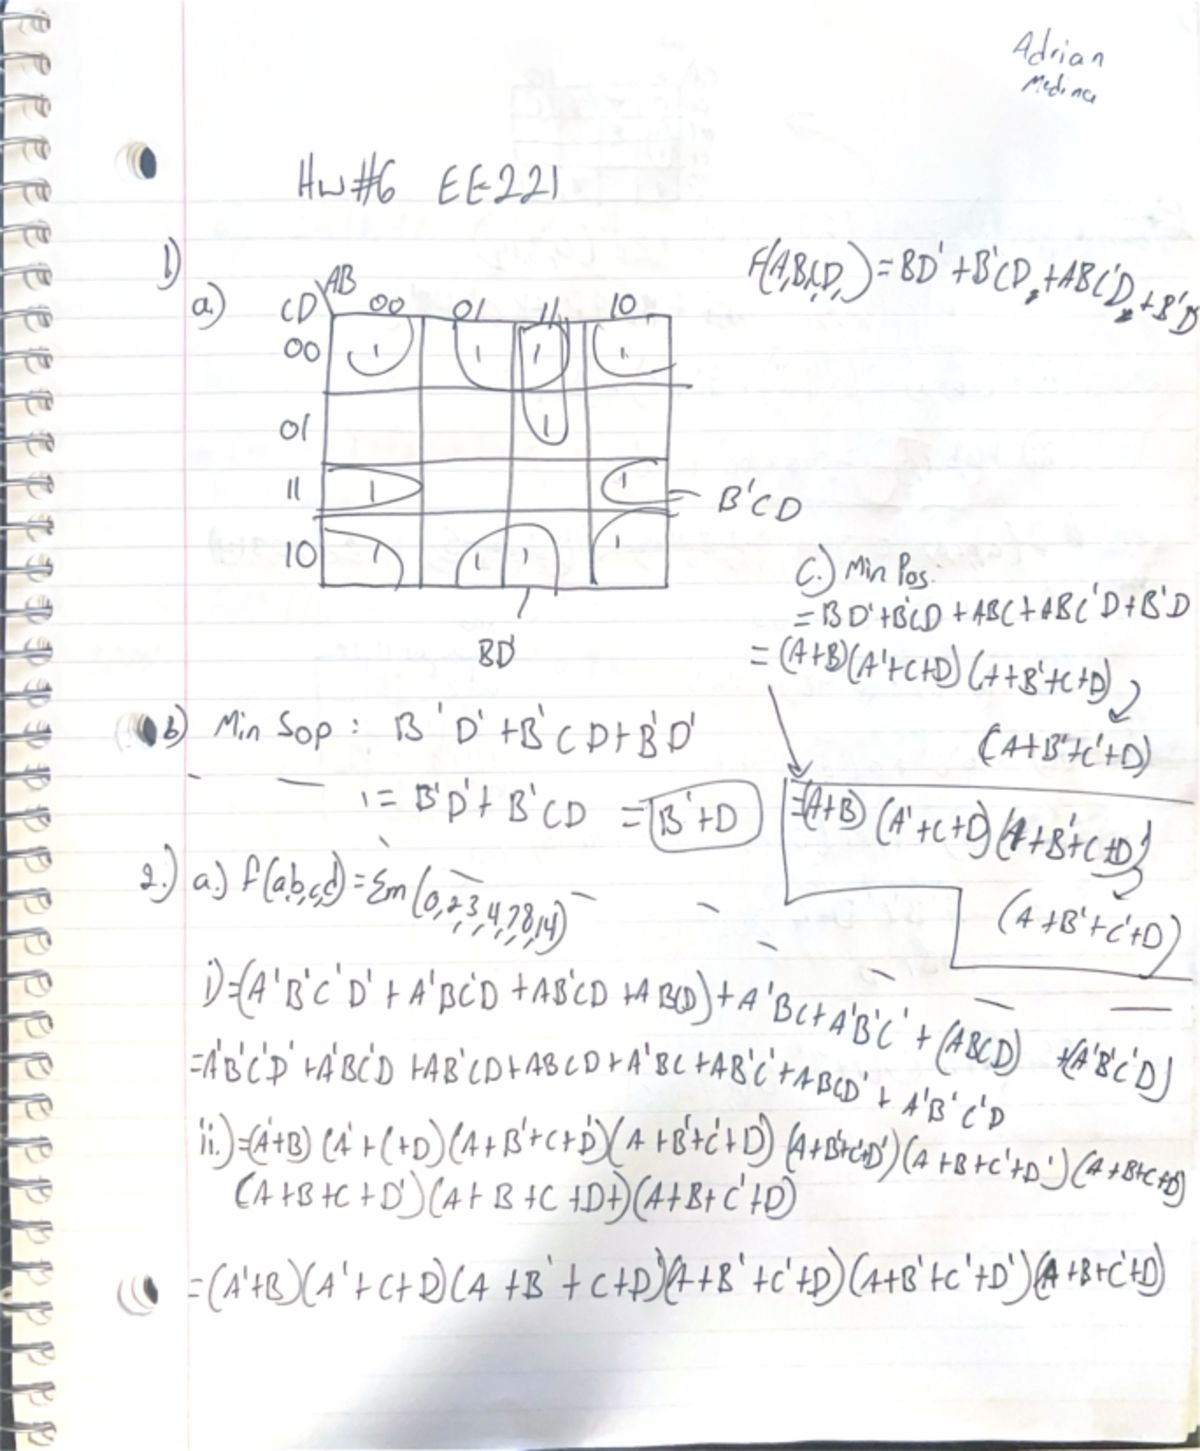 Adrian
Medina
Hw#6 EE221
1)
F(A,B,C,D,) = BD' + B'CD + ABC'D + B'D'
a.)
AB
CD 00 01 11 10
00 1 1 1 1
01 1
11 1 1
B'CD
10 1 1 1 1
BD'
C.) Min Pos.
= BD' + B'CD + ABC + ABC'D + B'D
= (A+B)(A'+C+D)(A+B'+C+D)
(A+B'+C'+D)
b) Min Sop : B'D' + B'CD + B'D'
= B'D' + B'CD = B'+D
= (A+B)(A'+C+D)(A+B'+C+D)
(A+B'+C'+D)
2.) a.) f(a,b,c,d) = Σm(0,2,3,4,7,8,14)
i) = (A'B'C'D' + A'BC'D + AB'CD + ABCD) + A'BC + A'B'C' + (ABCD) + (A'B'C'D)
= A'B'C'D' + A'BC'D + AB'CD + ABCD + A'BC + AB'C' + ABCD' + A'B'C'D
ii.) = (A'+B)(A'+C+D)(A+B'+C+D')(A+B'+C'+D)(A+B'+C'+D')(A+B+C'+D')(A+B+C+D)
(A+B+C+D')(A+B+C+D+)(A+B+C'+D)
= (A'+B)(A'+C+D)(A+B'+C+D')(A+B'+C'+D)(A+B'+C'+D')(A+B+C'+D)